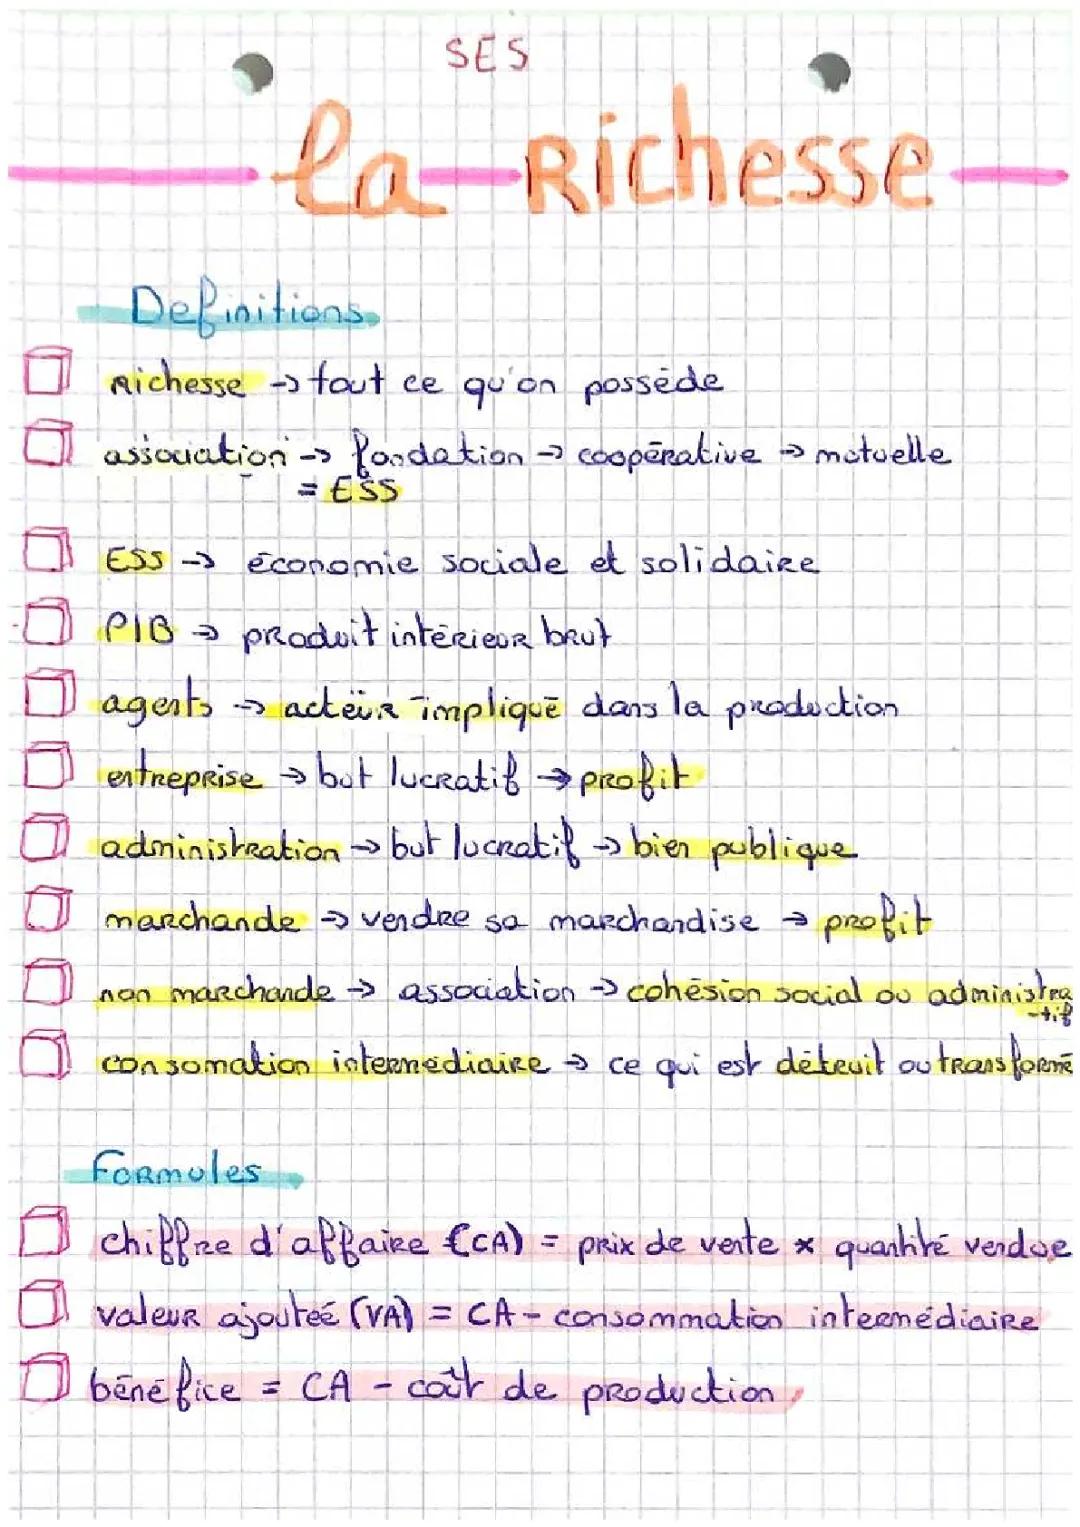 SES
la Richesse
Definitions
Richesse → tout ce qu'on possède
association → fondation → coopérative → mutuelle
= ESS
ESS → économie sociale et solidaire
PIB → produit intérieur brut
agents → acteur impliqué dans la production
entreprise → but lucratif → profit
administration → but lucratif → bien publique
marchande → vendre sa marchandise → profit
non marchande → association → cohésion social ou administra
-tif
consomation intermédiaire → ce qui est déteuit ou transformé
Formules
chiffre d'affaire (CA) = prix de vente * quantité vendue
valeur ajouteé (VA) = CA - consommation intermédiaire
bénéfice = CA - coût de production